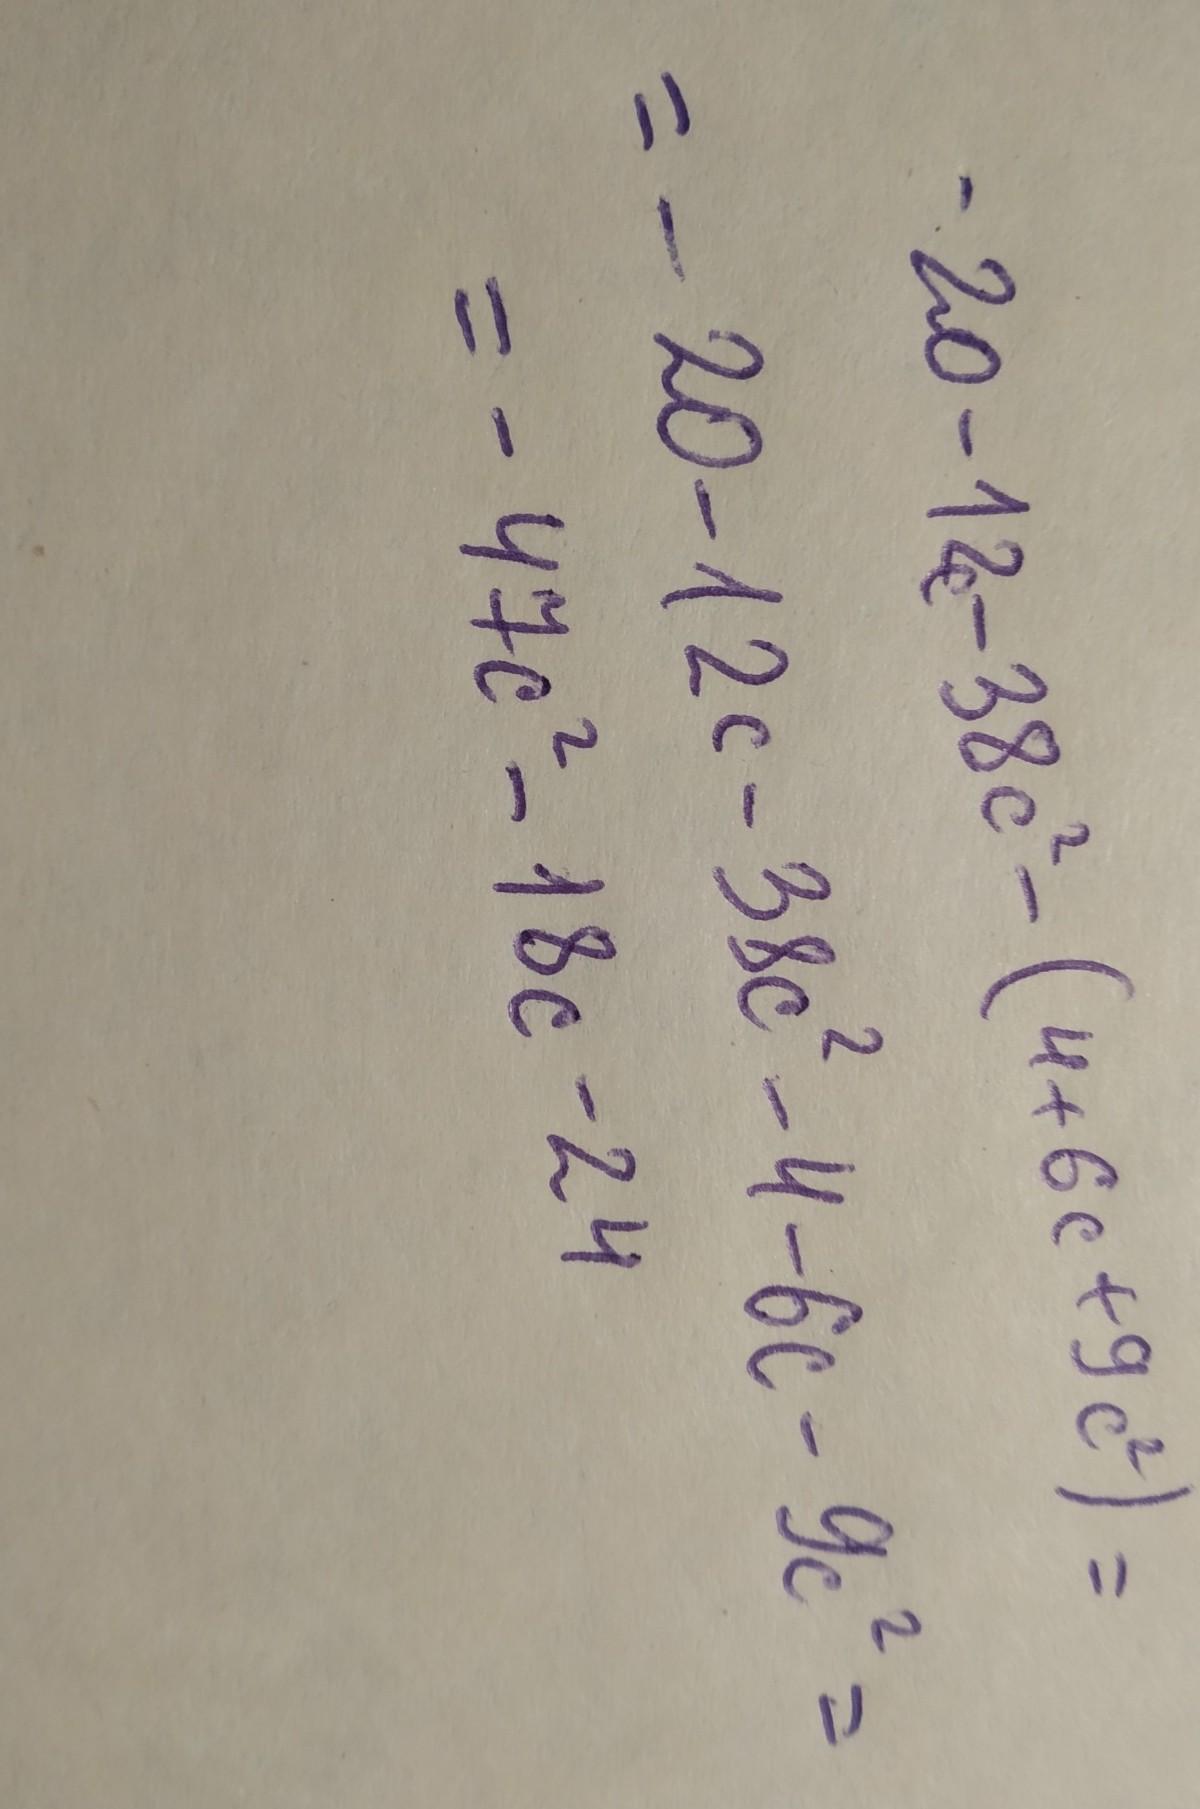 -20-12c-38c²-(4+6c+9c²)=
=-20-12c-38c²-4-6c-9c²=
=-47c²-18c-24